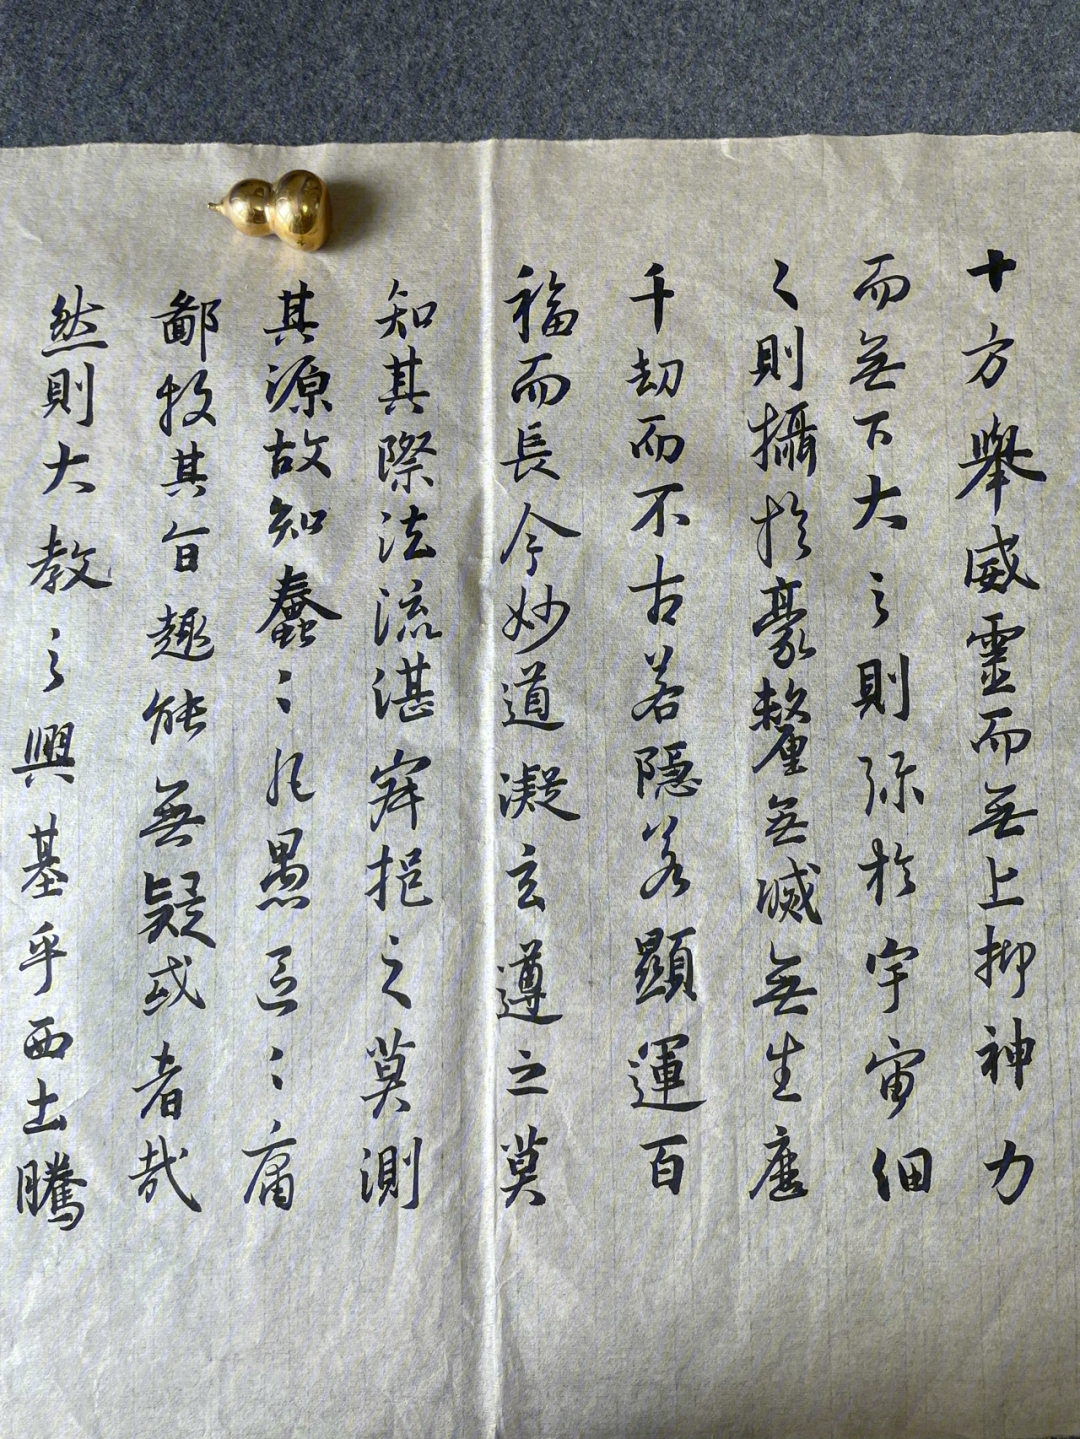 十方舉威靈而無上抑神力
而無下大之則弥於宇宙細
之則攝於豪釐無滅無生歷
千劫而不古若隱若顯運百
福而長今妙道凝玄遵之莫
知其際法流湛寂挹之莫測
其源故知蠢〻凡愚區〻庸
鄙投其旨趣能無疑或者哉
然則大教之興基乎西土騰